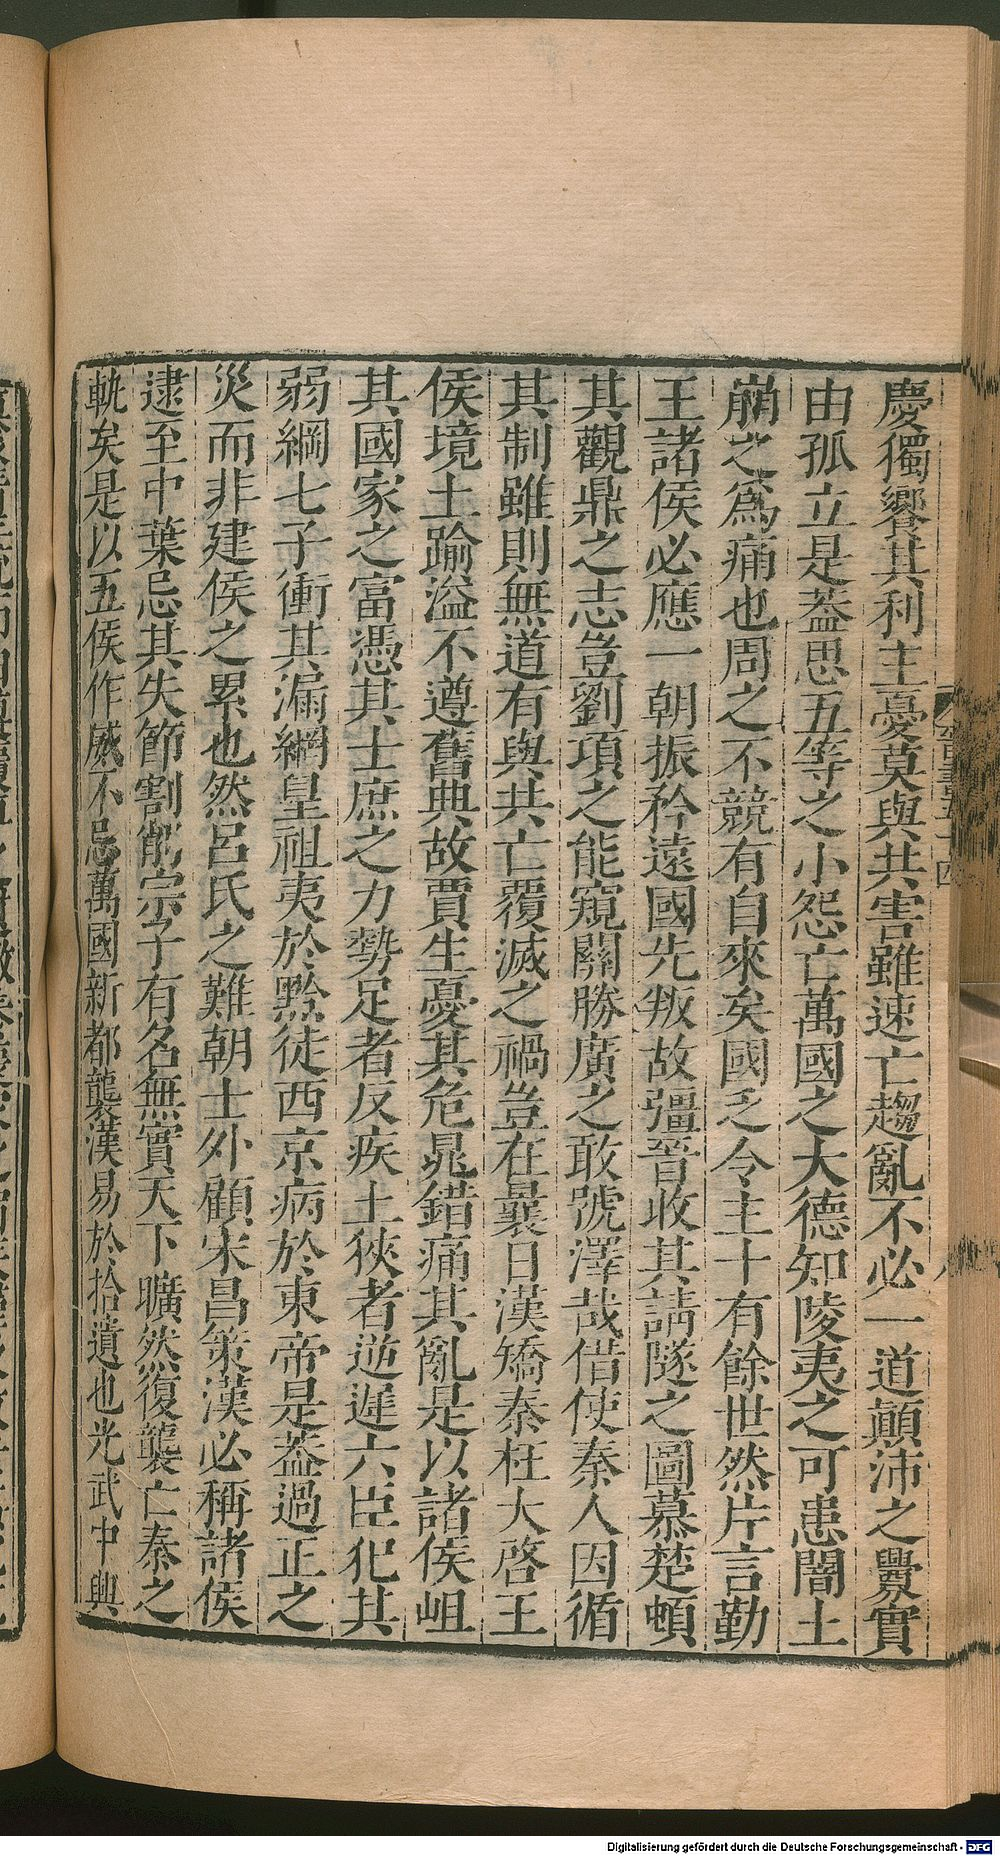 慶獨饗其利主憂莫與共害雖速亡趨亂不必一道顛沛之釁實
由孤立是蓋思五等之小怨亡萬國之大德知陵夷之可患闇土
崩之爲痛也周之不競有自來矣國乏令主十有餘世然片言勤
王諸侯必應一朝振矜遠國先叛故彊晉收其請隧之圖慕楚頓
其觀鼎之志豈劉項之能窺關勝廣之敢號澤哉借使秦人因循
其制雖則無道有與共亡覆滅之禍豈在曩日漢矯秦枉大啓王
侯境土踰溢不遵舊典故賈生憂其危晁錯痛其亂是以諸侯岨
其國家之富憑其士庶之力勢足者反疾土狹者逆遲六臣犯其
弱綱七子衝其漏網皇祖夷於黥徒西京病於東帝是蓋過正之
災而非建侯之累也然呂氏之難朝士外顧宋昌策漢必稱諸侯
逮至中葉忌其失節割削宗子有名無實天下曠然復襲亡秦之
軌矣是以五侯作威不忌萬國新都襲漢易於拾遺也光武中興
晉書五十四
八
Digitalisierung gefördert durch die Deutsche Forschungsgemeinschaft - DFG